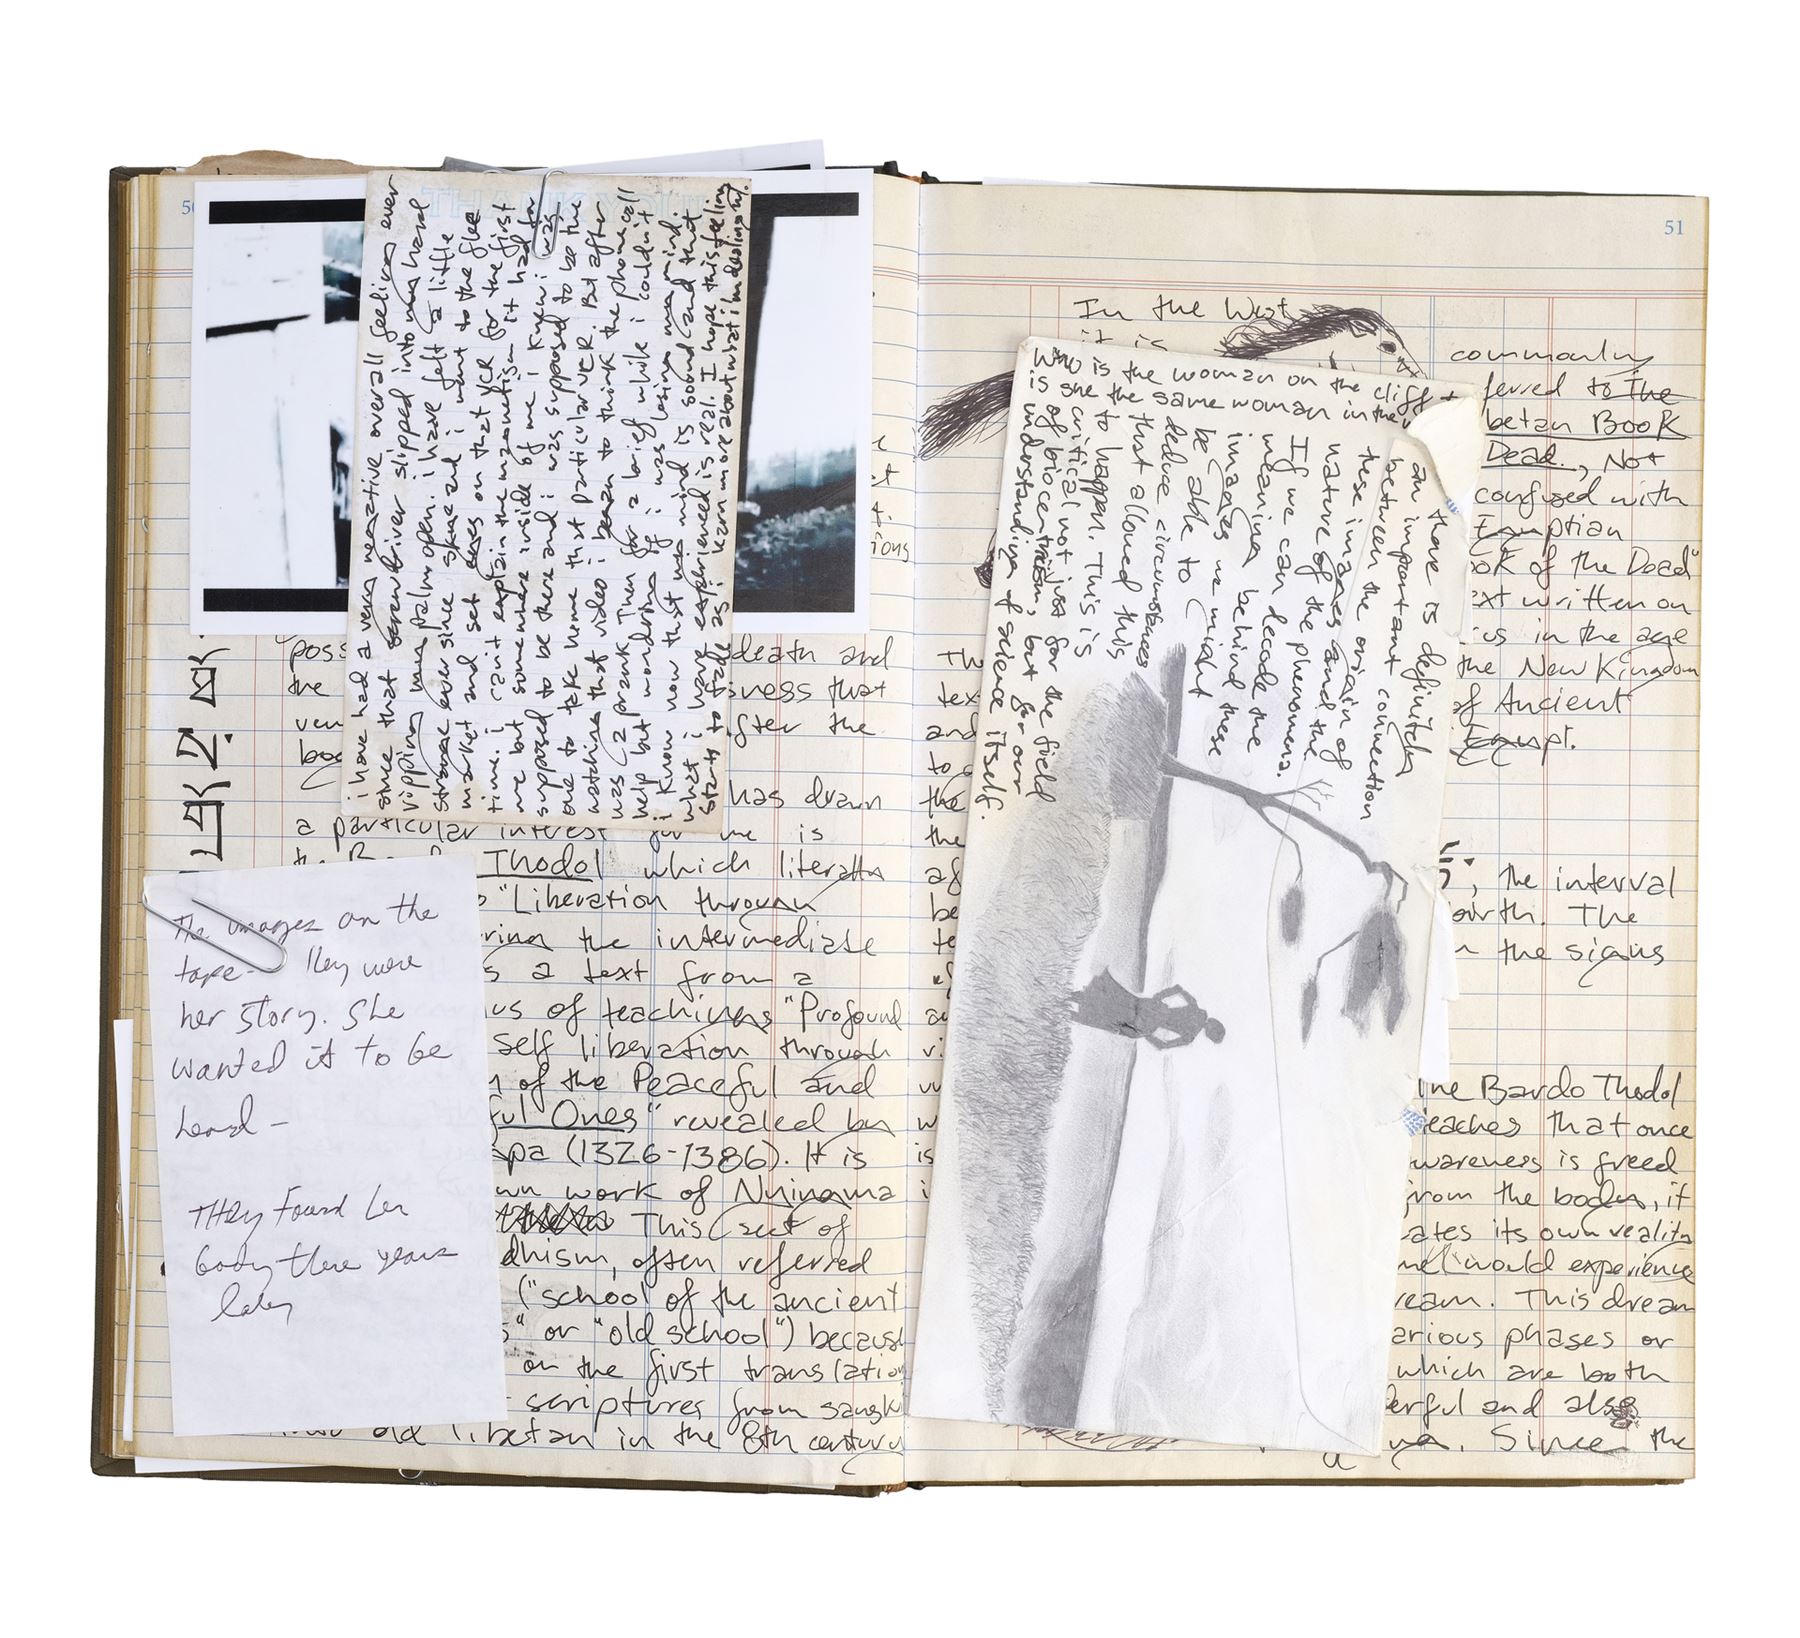 50
THANK YOU
i have had a very negative overall feeling ever
since that screwdriver slipped into my hand
ripping my palm open. i have felt a little
strange ever since skye and i went to the flea
market and set eyes on that VCR for the first
time. i can't explain the magnetism it had for
me but somewhere inside of me i knew i was
supposed to be there and i was supposed to be the
one to take home that particular VCR. But after
watching that video i began to think the phone call
was a prank. Then for a brief while i couldn't
help but wondring if i was losing my mind.
i know now that my mind is sound and that
what i have experienced is real. I hope this feeling
starts to fade as i learn more about what i'm dealing w/.
ions
poss death and
the sness that
ven after the
has drawn
a particular interest for me is
Thodol which literally
"Liberation through
the intermediate
s a text from a
us of teachings "Profound
self liberation through
of the Peaceful and
ful Ones" revealed by
pa (1326-1386). It is
wn work of Nyingma
This sect of
dhism, often referred
("school of the ancient
" or "old school") because
on the first translation
scriptures from sanskri
old Tibetan in the 8th century
The images on the
tape- They were
her story. She
wanted it to be
heard -
THEy Found her
body three years
later
51
In the West
it is commonly
ferred to The
betan Book
Dead., Not
confused with
Egyptian
ok of the Dead"
ext written on
us in the age
the New Kingdom
of Ancient
Egypt.
Who is the woman on the cliff &
is she the same woman in the
there is definitely
an important connection
between the origin of
these images and the
nature of the phenomena.
If we can decode the
meaning behind these
images we might
be able to
deduce circumstances
that allowed this
to happen. This is
critical not just for the field
of biocentrism, but for our
understanding of science itself.
Th
tex
and
to
the
the
af
be
te
, the interval
birth. The
n the signs
the Bardo Thodol
teaches that once
wareness is freed
from the body, it
eates its own reality
would experience
ream. This dream
arious phases or
which are both
erful and also
Since the